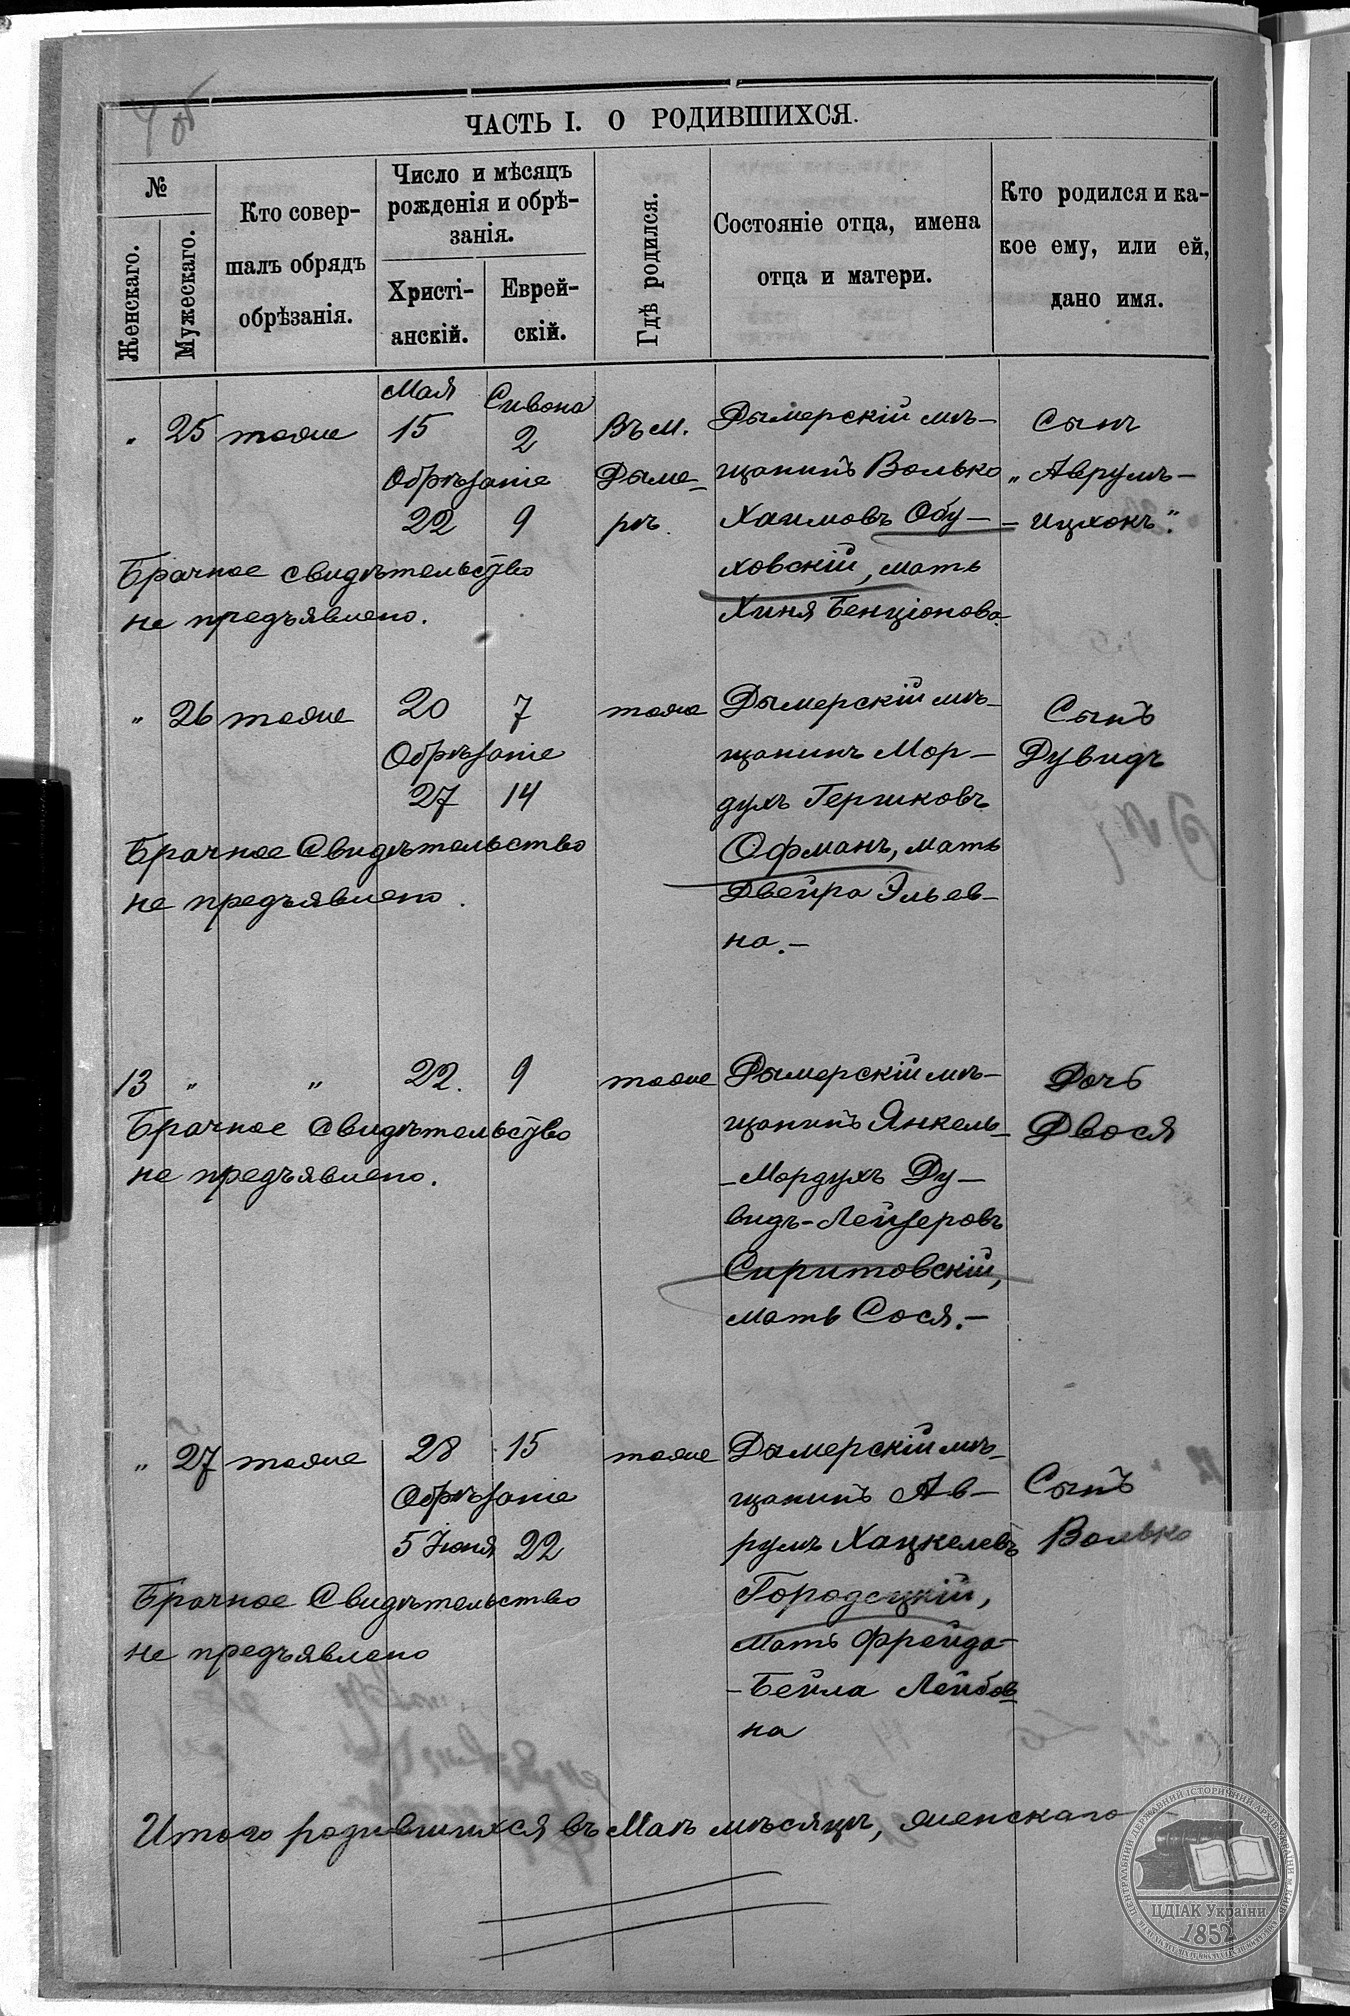 ЧАСТЬ I. О РОДИВШИХСЯ.
№
Женскаго.
Мужескаго.
Кто совер-
шалъ обрядъ
обрѣзанія.
Число и мѣсяцъ
рожденія и обрѣ-
занія.
Христі-
анскій.
Еврей-
скій.
Гдѣ родился.
Состояніе отца, имена
отца и матери.
Кто родился и ка-
кое ему, или ей,
дано имя.
" 25 тотже
Мая
15
Сивона
2
Обрѣзаніе
22 9
Въ м.
Дыме-
рѣ.
Дымерскій мѣ-
щанинъ Волько
Хаимовъ Обу-
ховскій, мать
Хиня Бенціонова.
Сынъ
„Аврумъ-
-Ицхокъ".
Брачное свидѣтельство
не предъявлено.
" 26 тоже 20 7
Обрѣзаніе
27 14
тоже
Дымерскій мѣ-
щанинъ Мор-
духъ Гершковъ
Офманъ, мать
Двейра Эльев-
на.-
Сынъ
Дувидъ
Брачное Свидѣтельство
не предъявлено.
13 " " 22. 9
тоже
Дымерскій мѣ-
щанинъ Янкель-
-Мордухъ Ду-
видъ-Лейзеровъ
Сиритовскій,
мать Сося.-
Дочь
Двося
Брачное Свидѣтельство
не предъявлено.
" 27 тоже 28 15
Обрѣзаніе
5 Іюня 22
тоже
Дымерскій мѣ-
щанинъ Ав-
румъ Хацкелевъ
Городецкій,
мать Фрейда-
-Бейла Лейбов-
на
Сынъ
Волько
Брачное Свидѣтельство
не предъявлено
Итого родившихся въ Маѣ мѣсяцѣ, женскаго
ЦДІАК України
1852